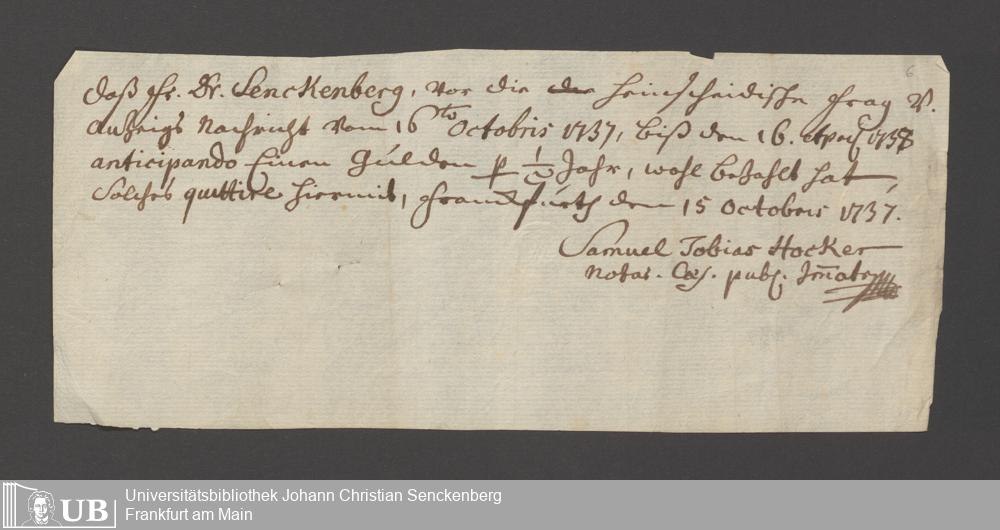 Daß Hr. Dr. Senckenberg, vor die Heinscheidische Frag v.
Anzeigs Nachricht vom 16ten Octobris 1737, biß den 16. April 1738
anticipando Einen Gulden p 1/2 Jahr, wohl bezahlt hat,
Solches quittire hiermit, Franckfurth den 15 Octobris 1737.
Samuel Tobias Hocker
Notar. Cæs. publ. Immatr
6
UB
Universitätsbibliothek Johann Christian Senckenberg
Frankfurt am Main